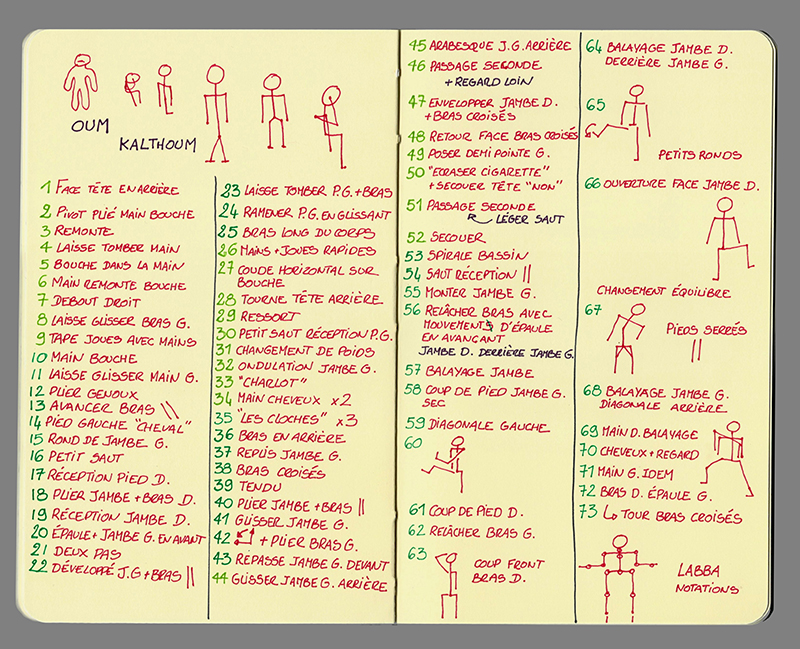 OUM
KALTHOUM
1 FACE TÊTE EN ARRIÈRE
2 PIVOT PLIÉ MAIN BOUCHE
3 REMONTE
4 LAISSE TOMBER MAIN
5 BOUCHE DANS LA MAIN
6 MAIN REMONTE BOUCHE
7 DEBOUT DROIT
8 LAISSE GLISSER BRAS G.
9 TAPE JOUES AVEC MAINS
10 MAIN BOUCHE
11 LAISSE GLISSER MAIN G.
12 PLIER GENOUX
13 AVANCER BRAS \\
14 PIED GAUCHE "CHEVAL"
15 ROND DE JAMBE G.
16 PETIT SAUT
17 RÉCEPTION PIED D.
18 PLIER JAMBE + BRAS D.
19 RÉCEPTION JAMBE D.
20 ÉPAULE + JAMBE G. EN AVANT
21 DEUX PAS
22 DÉVELOPPÉ J.G + BRAS ||
23 LAISSE TOMBER P.G. + BRAS
24 RAMENER P.G. EN GLISSANT
25 BRAS LONG DU CORPS
26 MAINS + JOUES RAPIDES
27 COUDE HORIZONTAL SUR
BOUCHE
28 TOURNE TÊTE ARRIÈRE
29 RESSORT
30 PETIT SAUT RÉCEPTION P.G.
31 CHANGEMENT DE POIDS
32 ONDULATION JAMBE G.
33 "CHARLOT"
34 MAIN CHEVEUX x2
35 "LES CLOCHES" x3
36 BRAS EN ARRIÈRE
37 REPLIS JAMBE G.
38 BRAS CROISÉS
39 TENDU
40 PLIER JAMBE + BRAS ||
41 GLISSER JAMBE G.
42 + PLIER BRAS G.
43 REPASSE JAMBE G. DEVANT
44 GLISSER JAMBE G. ARRIÈRE
45 ARABESQUE J.G. ARRIÈRE
46 PASSAGE SECONDE
+ REGARD LOIN
47 ENVELOPPER JAMBE D.
+ BRAS CROISÉS
48 RETOUR FACE BRAS CROISÉS
49 POSER DEMI POINTE G.
50 "ECRASER CIGARETTE"
+ SECOUER TÊTE "NON"
51 PASSAGE SECONDE
LÉGER SAUT
52 SECOUER
53 SPIRALE BASSIN
54 SAUT RÉCEPTION ||
55 MONTER JAMBE G.
56 RELÂCHER BRAS AVEC
MOUVEMENTS D'ÉPAULE
EN AVANÇANT
JAMBE D. DERRIÈRE JAMBE G.
57 BALAYAGE JAMBE
58 COUP DE PIED JAMBE G.
SEC
59 DIAGONALE GAUCHE
60
61 COUP DE PIED D.
62 RELÂCHER BRAS G.
63
COUP FRONT
BRAS D.
64 BALAYAGE JAMBE D.
DERRIÈRE JAMBE G.
65
PETITS RONDS
66 OUVERTURE FACE JAMBE D.
CHANGEMENT ÉQUILIBRE
67
PIEDS SERRÉS
||
68 BALAYAGE JAMBE G.
DIAGONALE ARRIÈRE
69 MAIN D. BALAYAGE
70 CHEVEUX + REGARD
71 MAIN G. IDEM
72 BRAS D. ÉPAULE G.
73 TOUR BRAS CROISÉS
LABBA
NOTATIONS